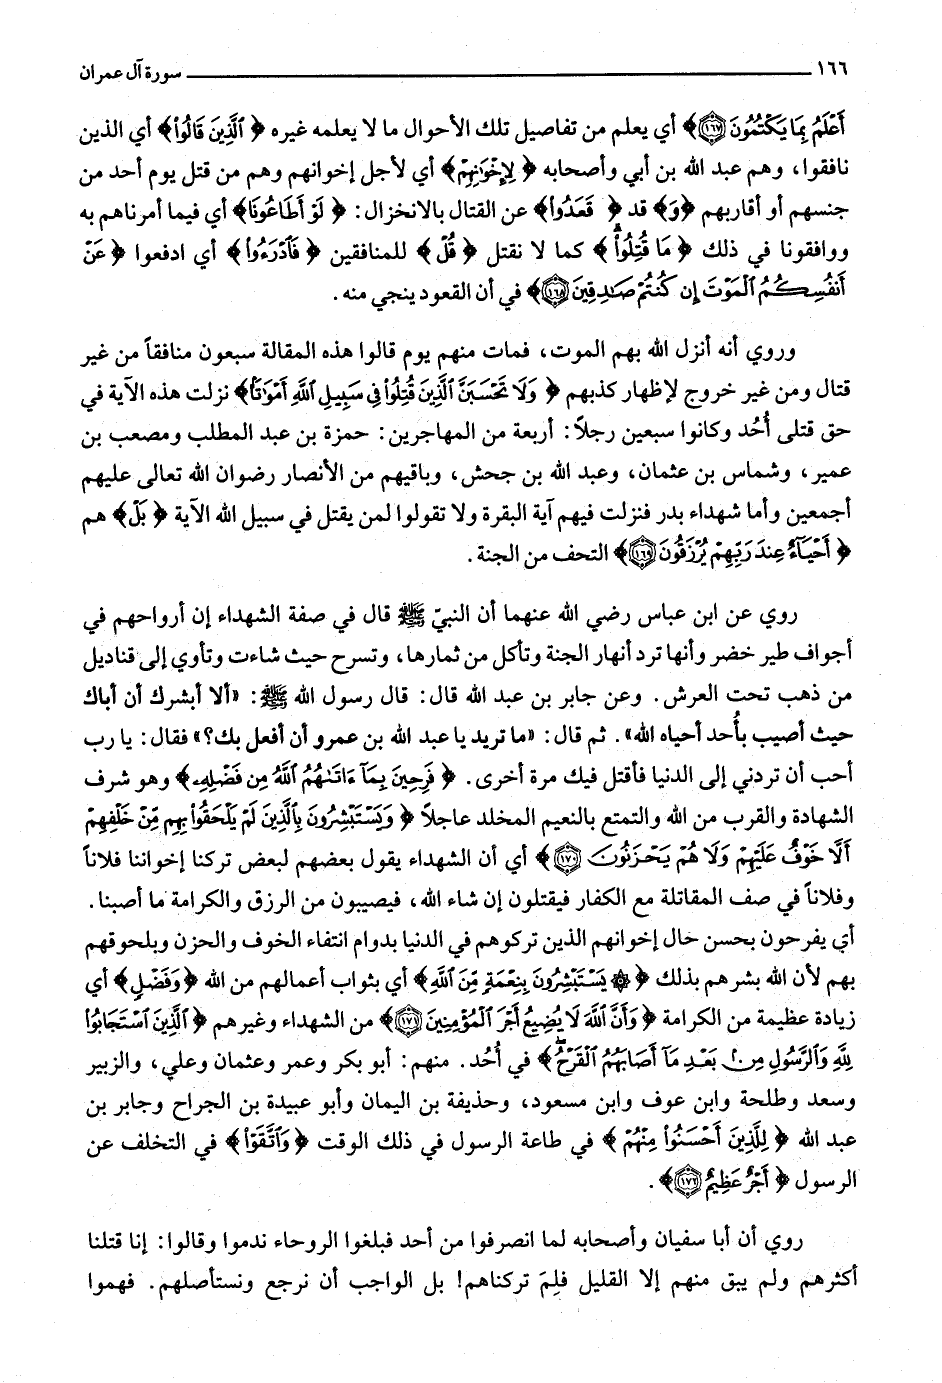 ١٦٦ سورة آل عمران
أَعْلَمُ بِمَا يَكْتُمُونَ ﴿١٦٧﴾﴾ أي يعلم من تفاصيل تلك الأحوال ما لا يعلمه غيره ﴿الَّذِينَ قَالُوا﴾ أي الذين
نافقوا، وهم عبد الله بن أبي وأصحابه ﴿لِإِخْوَانِهِمْ﴾ أي لأجل إخوانهم وهم من قتل يوم أحد من
جنسهم أو أقاربهم ﴿وَ﴾ قد ﴿قَعَدُوا﴾ عن القتال بالانخزال: ﴿لَوْ أَطَاعُونَا﴾ أي فيما أمرناهم به
ووافقونا في ذلك ﴿مَا قُتِلُوا﴾ كما لا نقتل ﴿قُلْ﴾ للمنافقين ﴿فَادْرَءُوا﴾ أي ادفعوا ﴿عَنْ
أَنفُسِكُمُ الْمَوْتَ إِن كُنتُمْ صَادِقِينَ ﴿١٦٨﴾﴾ في أن القعود ينجي منه.
وروي أنه أنزل الله بهم الموت، فمات منهم يوم قالوا هذه المقالة سبعون منافقاً من غير
قتال ومن غير خروج لإظهار كذبهم ﴿وَلَا تَحْسَبَنَّ الَّذِينَ قُتِلُوا فِي سَبِيلِ اللَّهِ أَمْوَاتًا﴾ نزلت هذه الآية في
حق قتلى أُحُد وكانوا سبعين رجلاً: أربعة من المهاجرين: حمزة بن عبد المطلب ومصعب بن
عمير، وشماس بن عثمان، وعبد الله بن جحش، وباقيهم من الأنصار رضوان الله تعالى عليهم
أجمعين وأما شهداء بدر فنزلت فيهم آية البقرة ولا تقولوا لمن يقتل في سبيل الله الآية ﴿بَلْ﴾ هم
﴿أَحْيَاءٌ عِندَ رَبِّهِمْ يُرْزَقُونَ ﴿١٦٩﴾﴾ التحف من الجنة.
روي عن ابن عباس رضي الله عنهما أن النبيّ ﷺ قال في صفة الشهداء إن أرواحهم في
أجواف طير خضر وأنها ترد أنهار الجنة وتأكل من ثمارها، وتسرح حيث شاءت وتأوي إلى قناديل
من ذهب تحت العرش. وعن جابر بن عبد الله قال: قال رسول الله ﷺ: «ألا أبشرك أن أباك
حيث أصيب بأُحد أحياه الله». ثم قال: «ما تريد يا عبد الله بن عمرو أن أفعل بك؟» فقال: يا رب
أحب أن تردني إلى الدنيا فأقتل فيك مرة أخرى. ﴿فَرِحِينَ بِمَا ءَاتَاهُمُ اللَّهُ مِن فَضْلِهِ﴾ وهو شرف
الشهادة والقرب من الله والتمتع بالنعيم المخلد عاجلاً ﴿وَيَسْتَبْشِرُونَ بِالَّذِينَ لَمْ يَلْحَقُوا بِهِم مِّنْ خَلْفِهِمْ
أَلَّا خَوْفٌ عَلَيْهِمْ وَلَا هُمْ يَحْزَنُونَ ﴿١٧٠﴾﴾ أي أن الشهداء يقول بعضهم لبعض تركنا إخواننا فلاناً
وفلاناً في صف المقاتلة مع الكفار فيقتلون إن شاء الله، فيصيبون من الرزق والكرامة ما أصبنا.
أي يفرحون بحسن حال إخوانهم الذين تركوهم في الدنيا بدوام انتفاء الخوف والحزن وبلحوقهم
بهم لأن الله بشرهم بذلك ﴿۞ يَسْتَبْشِرُونَ بِنِعْمَةٍ مِّنَ اللَّهِ﴾ أي بثواب أعمالهم من الله ﴿وَفَضْلٍ﴾ أي
زيادة عظيمة من الكرامة ﴿وَأَنَّ اللَّهَ لَا يُضِيعُ أَجْرَ الْمُؤْمِنِينَ ﴿١٧١﴾﴾ من الشهداء وغيرهم ﴿الَّذِينَ اسْتَجَابُوا
لِلَّهِ وَالرَّسُولِ مِن بَعْدِ مَا أَصَابَهُمُ الْقَرْحُ﴾ في أُحُد. منهم: أبو بكر وعمر وعثمان وعلي، والزبير
وسعد وطلحة وابن عوف وابن مسعود، وحذيفة بن اليمان وأبو عبيدة بن الجراح وجابر بن
عبد الله ﴿لِلَّذِينَ أَحْسَنُوا مِنْهُمْ﴾ في طاعة الرسول في ذلك الوقت ﴿وَاتَّقَوْا﴾ في التخلف عن
الرسول ﴿أَجْرٌ عَظِيمٌ ﴿١٧٢﴾﴾.
روي أن أبا سفيان وأصحابه لما انصرفوا من أحد فبلغوا الروحاء ندموا وقالوا: إنا قتلنا
أكثرهم ولم يبق منهم إلا القليل فلِمَ تركناهم! بل الواجب أن نرجع ونستأصلهم. فهموا